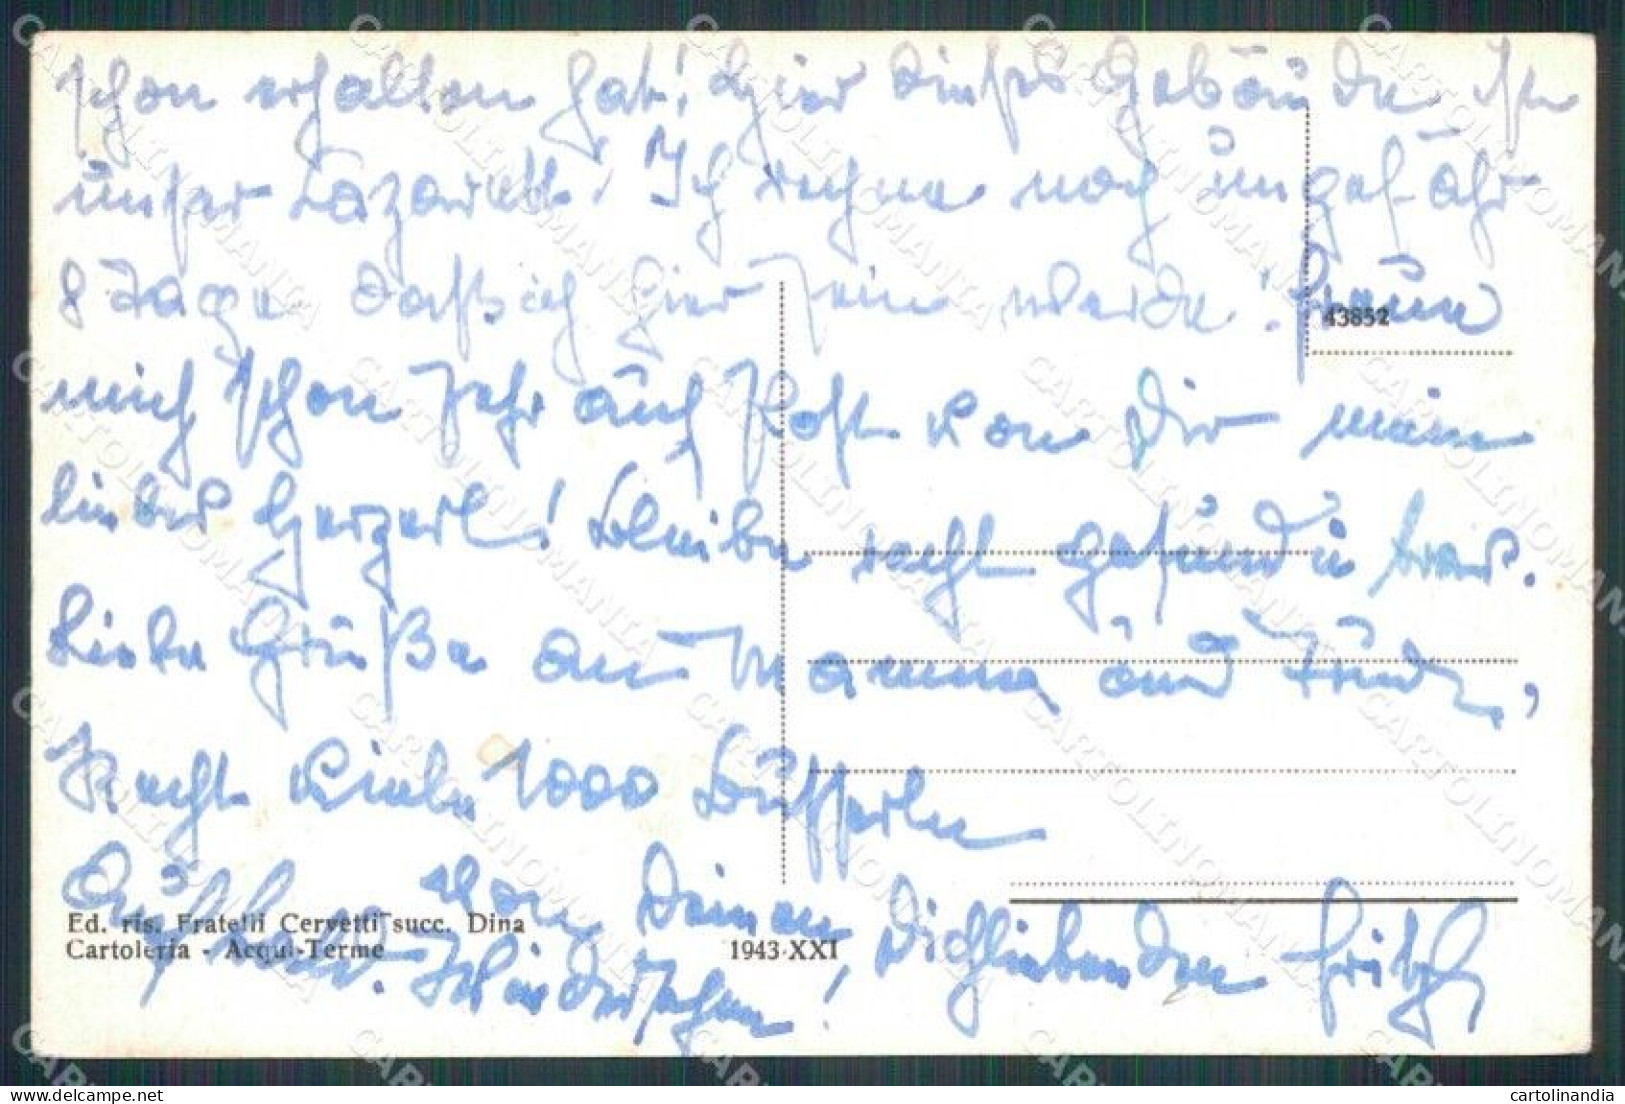 schon erhalten hat! Hier dieses Gebäude ist
unser Lazarett! Ich rechne noch ungefähr
8 Tage daß ich hier sein werde! Freue
43852
mich schon sehr auf Post von Dir mein
liebes Herzerl! Bleibe recht gesund u. brav.
Liebe Grüße an Mamma und
Recht viele 1000 Busserln
von Deinen Dichliebenden Fritzl
Auf Wiedersehen!
Ed. ris. Fratelli Cervetti succ. Dina
Cartoleria - Acqui-Terme
1943-XXI
CARTOLINOMANIA
delcampe.net
cartolinandia